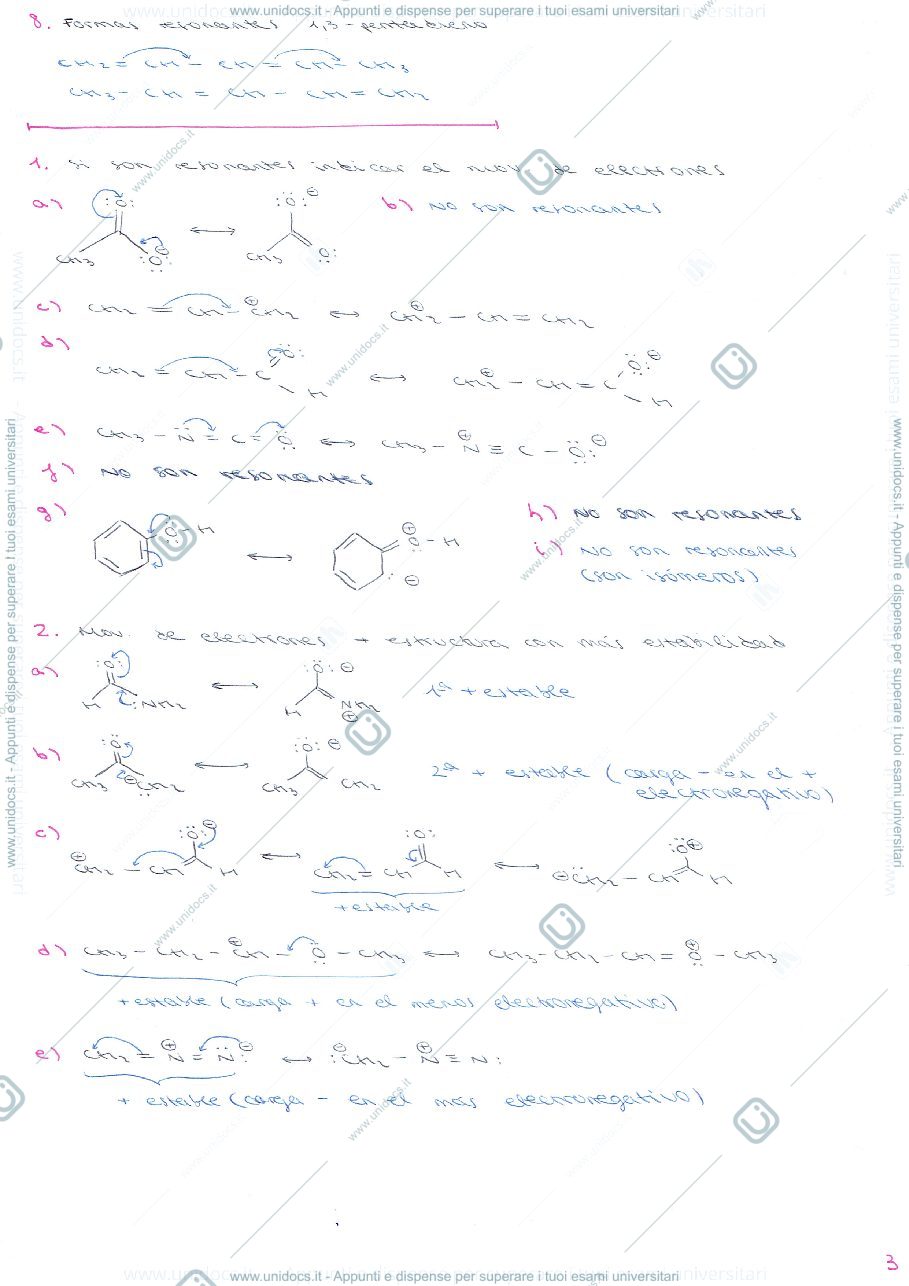 www.unidocs.it - Appunti e dispense per superare i tuoi esami universitari
8. Formas resonantes 1,3-pentadieno
CH2 = CH - CH = CH - CH3
CH3 - CH = CH - CH = CH2
1. Si son resonantes indicar el mov. de electrones
a) :O: CH3 :O: ⊖ ⟷ :O: ⊖ CH3 O:
b) No son resonantes
c) CH2 = CH - ⊕CH2 ⟷ ⊕CH2 - CH = CH2
d) CH2 = CH - C O: H ⟷ ⊕CH2 - CH = C :O: ⊖ H
e) CH3 - N̈ = C = Ö ⟷ CH3 - ⊕N ≡ C - Ö: ⊖
f) No son resonantes
g) Ö - H ⟷ ⊕O - H : ⊖
h) No son resonantes
i) No son resonantes
(son isómeros)
2. Mov. de electrones + estructura con más estabilidad
a) :O: H :NH2 ⟷ :O: ⊖ H NH2 ⊕ 1ª + estable
b) :O: CH3 ⊖CH2 ⟷ :O: ⊖ CH3 CH2 2ª + estable (carga - en el +
electronegativo)
c) ⊕CH2 - CH :O: ⊖ H ⟷ CH2 = CH :O: H ⟷ ⊖:CH2 - CH :O⊕ H
+ estable
d) CH3 - CH2 - ⊕CH - Ö - CH3 ⟷ CH3 - CH2 - CH = ⊕O - CH3
+ estable (carga + en el menos electronegativo)
e) CH2 = ⊕N = N̈: ⊖ ⟷ :⊖CH2 - ⊕N ≡ N:
+ estable (carga - en el más electronegativo)
3
www.unidocs.it - Appunti e dispense per superare i tuoi esami universitari